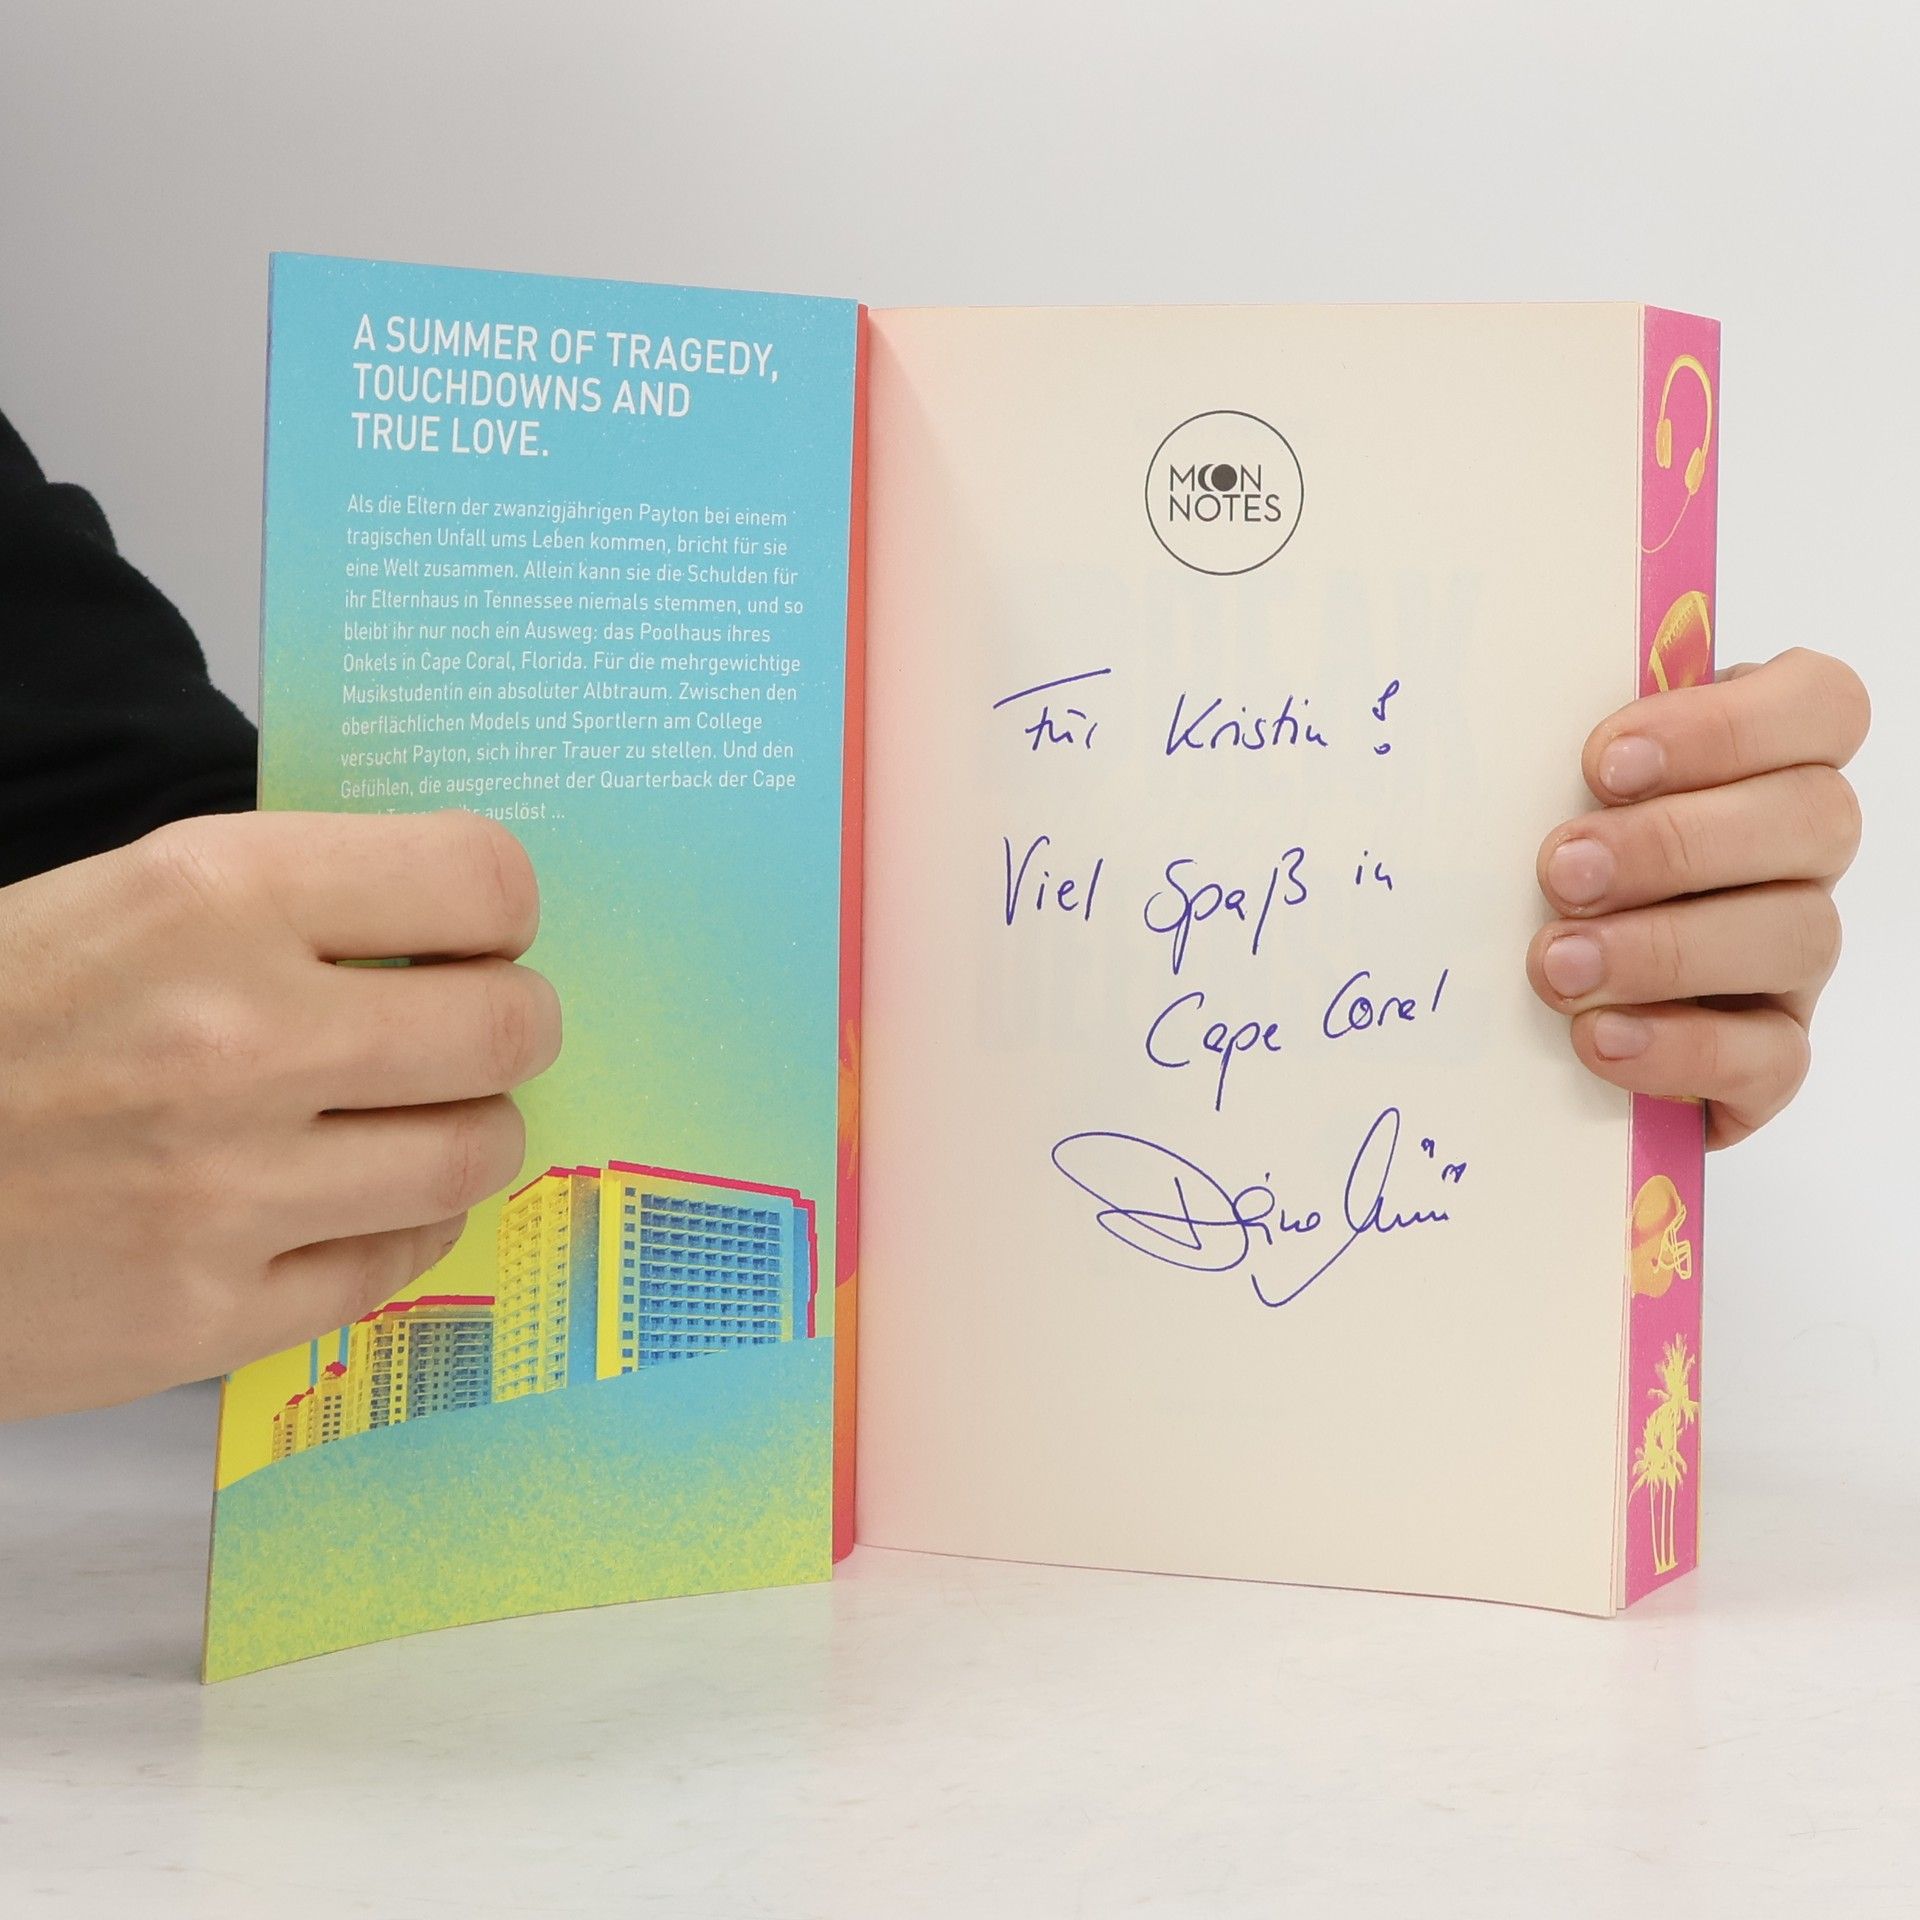 A SUMMER OF TRAGEDY,
TOUCHDOWNS AND
TRUE LOVE.
Als die Eltern der zwanzigjährigen Payton bei einem
tragischen Unfall ums Leben kommen, bricht für sie
eine Welt zusammen. Allein kann sie die Schulden für
ihr Elternhaus in Tennessee niemals stemmen, und so
bleibt ihr nur noch ein Ausweg: das Poolhaus ihres
Onkels in Cape Coral, Florida. Für die mehrgewichtige
Musikstudentin ein absoluter Albtraum. Zwischen den
oberflächlichen Models und Sportlern am College
versucht Payton, sich ihrer Trauer zu stellen. Und den
Gefühlen, die ausgerechnet der Quarterback der Cape
auslöst ...
MOON
NOTES
Für Kristin!
Viel Spaß in
Cape Coral